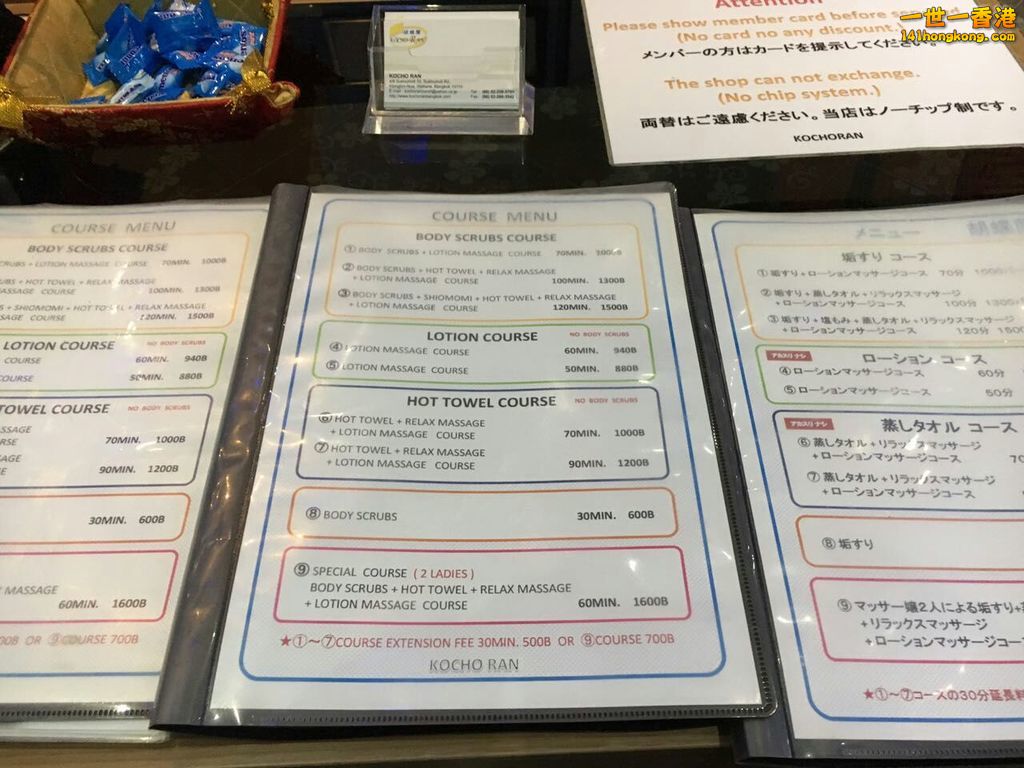 一世一香港
141hongkong.com
KOCHO RAN
Attention
Please show member card before
(No card no any discount.
メンバーの方はカードを提示してください。
The shop can not exchange.
(No chip system.)
両替はご遠慮ください。当店はノーチップ制です。
KOCHORAN
COURSE MENU
BODY SCRUBS COURSE
+ LOTION MASSAGE COURSE 70MIN. 1000B
+ HOT TOWEL + RELAX MASSAGE
MASSAGE COURSE 100MIN. 1300B
+ SHIOMOMI + HOT TOWEL + RELAX MASSAGE
MASSAGE COURSE 120MIN. 1500B
LOTION COURSE NO BODY SCRUBS
COURSE 60MIN. 940B
COURSE 50MIN. 880B
TOWEL COURSE NO BODY SCRUBS
70MIN. 1000B
90MIN. 1200B
30MIN. 600B
MASSAGE
60MIN. 1600B
OR ⑨COURSE 700B
COURSE MENU
BODY SCRUBS COURSE
① BODY SCRUBS + LOTION MASSAGE COURSE 70MIN. 1000B
② BODY SCRUBS + HOT TOWEL + RELAX MASSAGE
+ LOTION MASSAGE COURSE 100MIN. 1300B
③ BODY SCRUBS + SHIOMOMI + HOT TOWEL + RELAX MASSAGE
+ LOTION MASSAGE COURSE 120MIN. 1500B
LOTION COURSE NO BODY SCRUBS
④ LOTION MASSAGE COURSE 60MIN. 940B
⑤ LOTION MASSAGE COURSE 50MIN. 880B
HOT TOWEL COURSE NO BODY SCRUBS
⑥ HOT TOWEL + RELAX MASSAGE
+ LOTION MASSAGE COURSE 70MIN. 1000B
⑦ HOT TOWEL + RELAX MASSAGE
+ LOTION MASSAGE COURSE 90MIN. 1200B
⑧ BODY SCRUBS 30MIN. 600B
⑨ SPECIAL COURSE ( 2 LADIES )
BODY SCRUBS + HOT TOWEL + RELAX MASSAGE
+ LOTION MASSAGE COURSE 60MIN. 1600B
★①～⑦COURSE EXTENSION FEE 30MIN. 500B OR ⑨COURSE 700B
KOCHO RAN
メニュー
垢すり コース
①垢すり+ローションマッサージコース 70分
②垢すり+蒸しタオル+リラックスマッサージ
+ローションマッサージコース 100分
③垢すり+塩もみ+蒸しタオル+リラックスマッサージ
+ローションマッサージコース 120分
アカスリ ナシ ローション コース
④ローションマッサージコース 60分
⑤ローションマッサージコース 50分
アカスリ ナシ 蒸しタオル コース
⑥ 蒸しタオル+リラックスマッサージ
+ローションマッサージコース
⑦ 蒸しタオル+リラックスマッサージ
+ローションマッサージコース
⑧垢すり
⑨マッサー嬢2人による垢すり+
+リラックスマッサージ
+ローションマッサージコー
★①～⑦コースの30分延長料